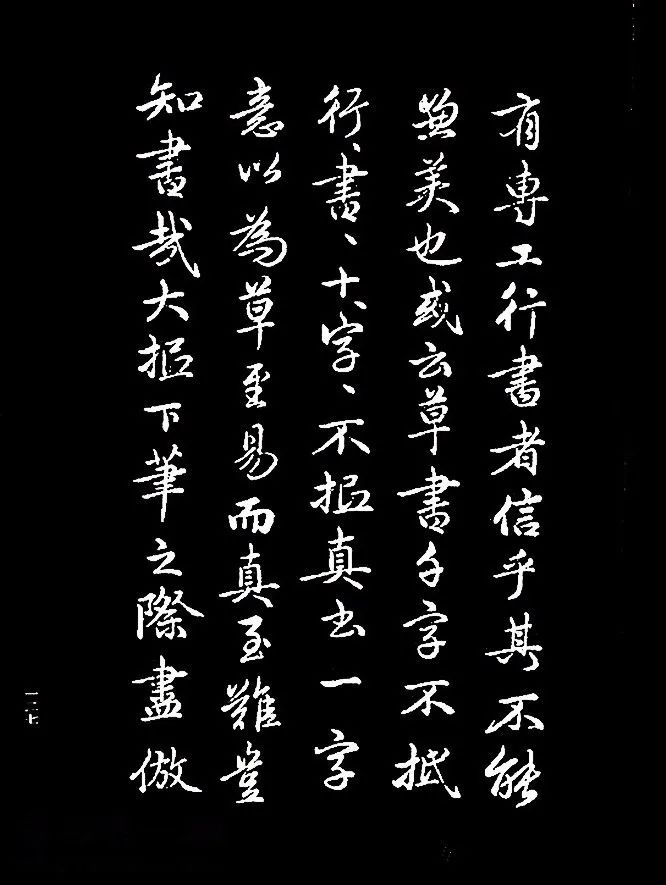 有專工行書者信乎其不能
兼美也或云草書千字不抵
行、書、十、字、不抵真书一字
意以為草至易而真至難豈
知書哉大抵下筆之際盡倣